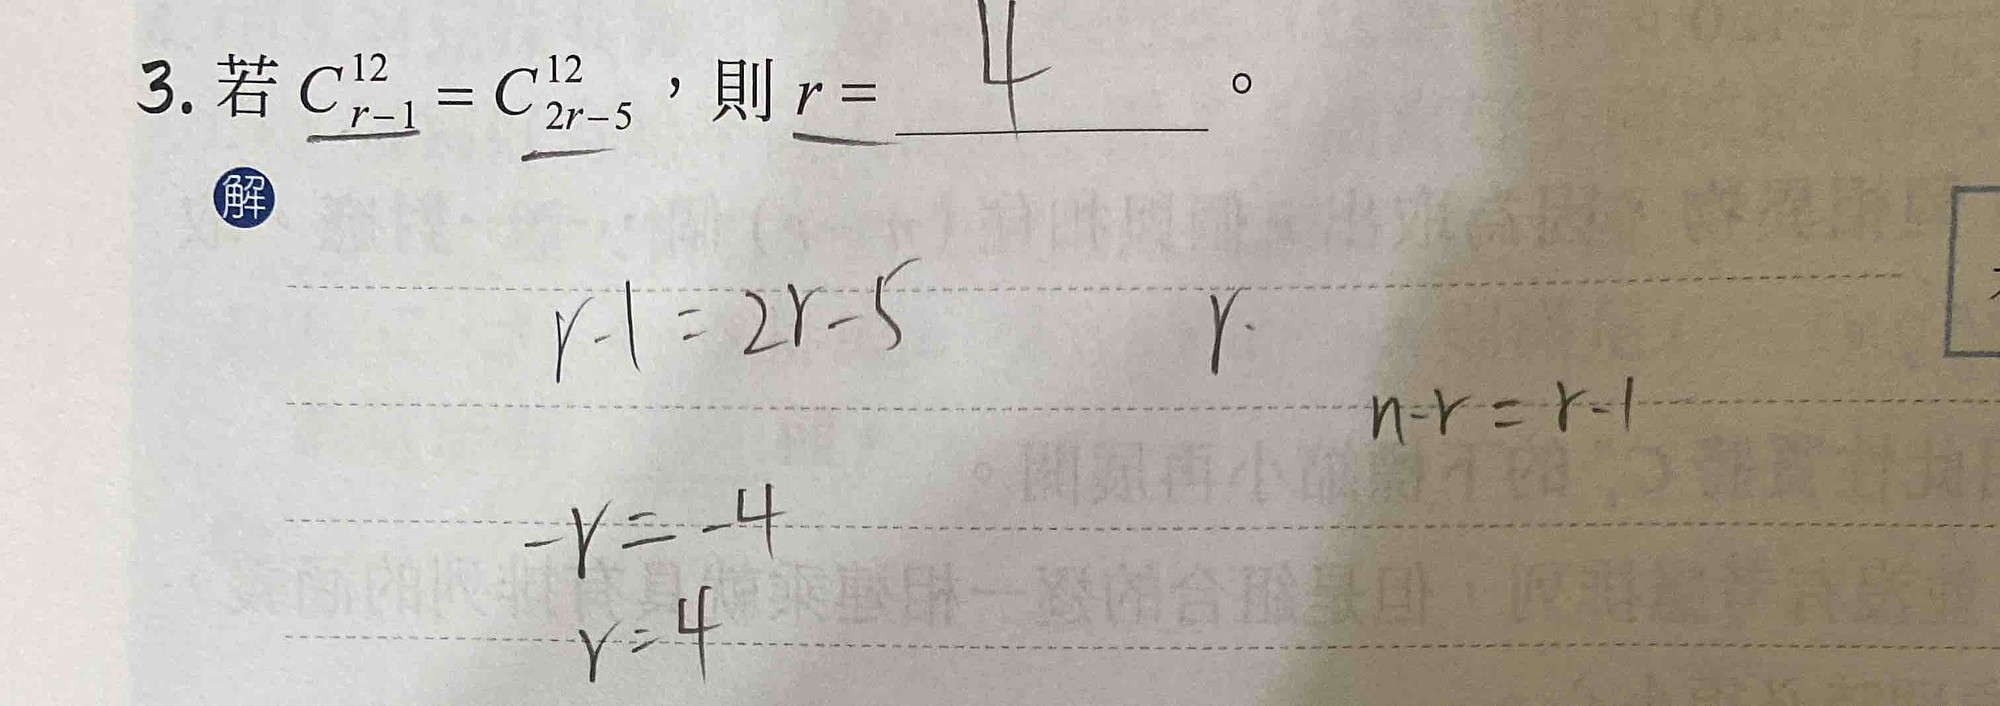 3. 若 C^{12}_{r-1} = C^{12}_{2r-5}，則 r = 4 。
解
r-1 = 2r-5
r.
n-r = r-1
-r = -4
r = 4